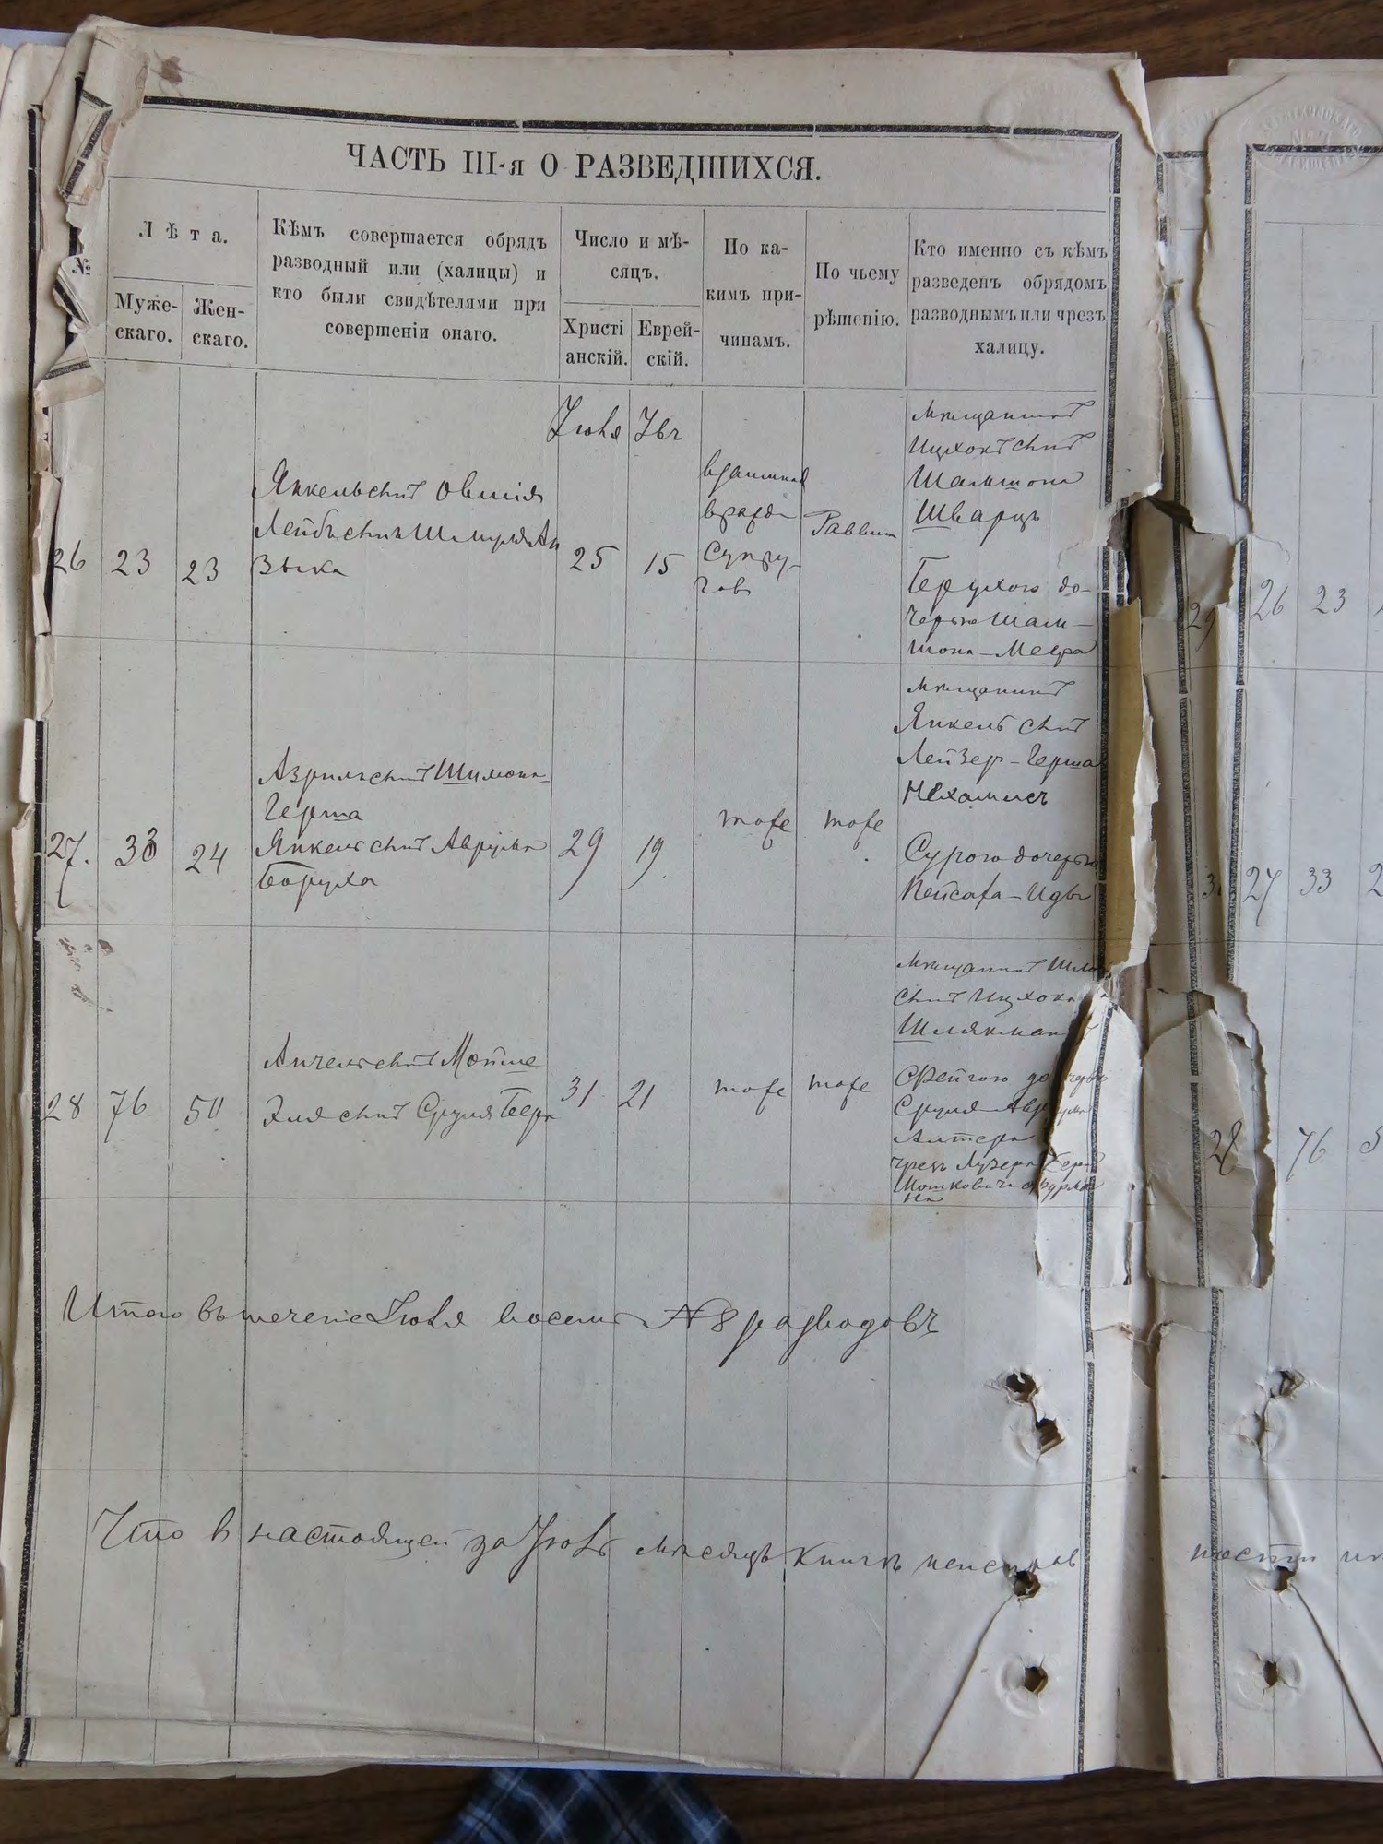 ЧАСТЬ III-я О РАЗВЕДШИХСЯ.
№
Лѣта.
Муже-
скаго.
Жен-
скаго.
Кѣмъ совершается обрядъ
разводный или (халицы) и
кто были свидѣтелями при
совершеніи онаго.
Число и мѣ-
сяцъ.
Христі
анскій.
Еврей-
скій.
По ка-
кимъ при-
чинамъ.
По чьему
рѣшенію.
Кто именно съ кѣмъ
разведенъ обрядомъ
разводнымъ или чрезъ
халицу.
26
23
23
Янкель сынъ Овшія
Лейбъ сынъ Шмуля Ай
зыка
Іюля
25
15
взаимная
вражда
супру-
говъ
Раввин
мещанинъ
Ицхокъ сынъ
Шамшона
Шварцъ
Герухою до-
черью Шам-
шона-Меера
27.
33
24
Азриль сынъ Шимона-
Герша
Янкель сынъ Аврума
Боруха
29
19
тоже
тоже
мещанинъ
Янкель сынъ
Лейзер-Герша
Сурою дочерью
Пейсаха-Иды
28
76
50
сынъ Мойше
Эля сынъ Сруля Бера
31
21
тоже
тоже
мещанинъ
сынъ Ицхока
Шлякман
Фейгою до черью
Сруля-Аврума
Алтера
чрезъ Лузера
Итого въ теченіе Іюля восемь № 8 разводовъ
Что в настоящей за Іюль месяцъ книгѣ
26 23
27 33 2
28 76 5